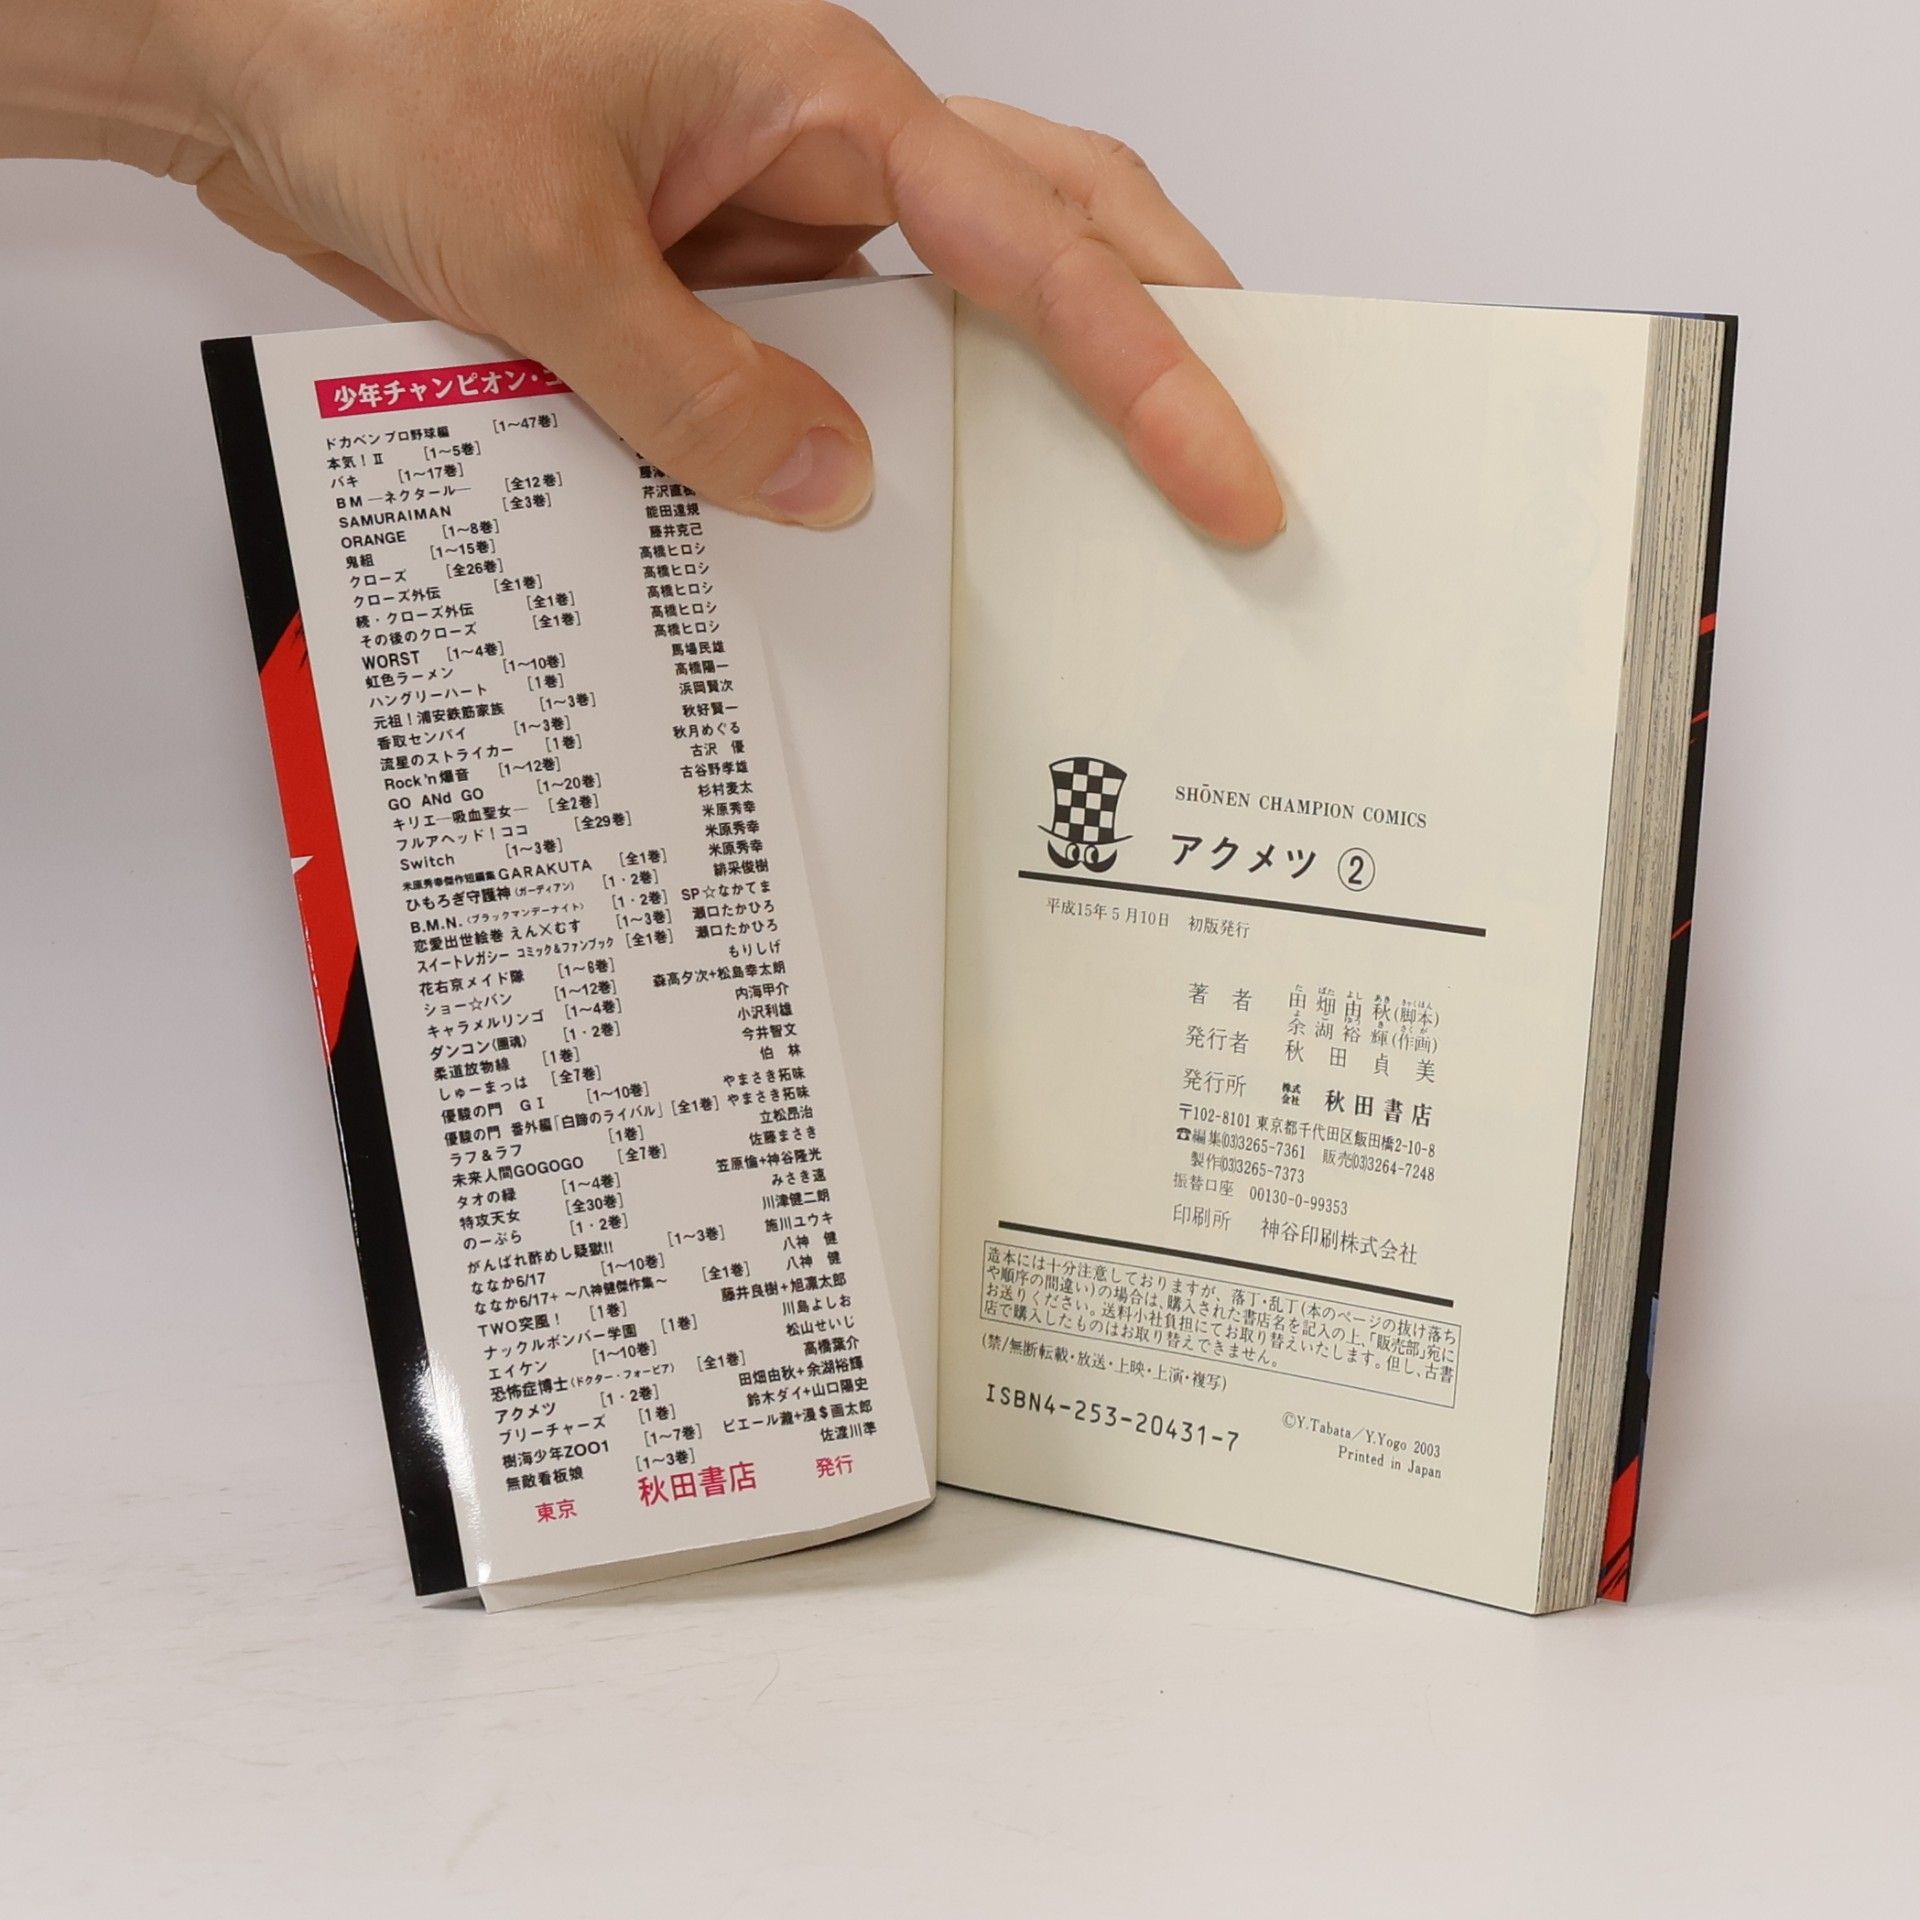 少年チャンピオン・コ
ドカベン プロ野球編 [1〜47巻]
本気！II [1〜5巻]
バキ [1〜17巻]
BM ―ネクタール― [全12巻]
SAMURAIMAN [全3巻] 芹沢直樹
ORANGE [1〜8巻] 能田達規
鬼組 [1〜15巻] 藤井克己
クローズ [全26巻] 高橋ヒロシ
クローズ外伝 [全1巻] 高橋ヒロシ
続・クローズ外伝 [全1巻] 高橋ヒロシ
その後のクローズ [全1巻] 高橋ヒロシ
WORST [1〜4巻] 高橋ヒロシ
虹色ラーメン [1〜10巻] 馬場民雄
ハングリーハート [1巻] 高橋陽一
元祖！浦安鉄筋家族 [1〜3巻] 浜岡賢次
香取センパイ [1〜3巻] 秋好賢一
流星のストライカー [1巻] 秋月めぐる
Rock'n爆音 [1〜12巻] 古沢 優
GO ANd GO [1〜20巻] 古谷野孝雄
キリエ―吸血聖女― [全2巻] 杉村麦太
フルアヘッド！ココ [全29巻] 米原秀幸
Switch [1〜3巻] 米原秀幸
米原秀幸傑作短編集GARAKUTA [全1巻] 米原秀幸
ひもろぎ守護神(ガーディアン) [1・2巻] 緋采俊樹
B.M.N.(ブラックマンデーナイト) [1・2巻] SP☆なかてま
恋愛出世絵巻 えん×むす [1〜3巻] 瀬口たかひろ
スイートレガシー コミック&ファンブック [全1巻] 瀬口たかひろ
花右京メイド隊 [1〜6巻] もりしげ
ショー☆バン [1〜12巻] 森高夕次+松島幸太朗
キャラメルリンゴ [1〜4巻] 内海甲介
ダンコン〈團魂〉 [1・2巻] 小沢利雄
柔道放物線 [1巻] 今井智文
しゅーまっは [全7巻] 伯 林
優駿の門 GI [1〜10巻] やまさき拓味
優駿の門 番外編「白蹄のライバル」 [全1巻] やまさき拓味
ラフ＆ラフ [1巻] 立松昂治
未来人間GOGOGO [全7巻] 佐藤まさき
タオの緑 [1〜4巻] 笠原倫+神谷隆光
特攻天女 [全30巻] みさき速
のーぷら [1・2巻] 川津健二朗
がんばれ酢めし疑獄!! [1〜3巻] 施川ユウキ
ななか6/17 [1〜10巻] 八神 健
ななか6/17+ 〜八神健傑作集〜 [全1巻] 八神 健
TWO突風！ [1巻] 藤井良樹+旭凛太郎
ナックルボンバー学園 [1巻] 川島よしお
エイケン [1〜10巻] 松山せいじ
恐怖症博士(ドクター・フォービア) [全1巻] 高橋葉介
アクメツ [1・2巻] 田畑由秋+余湖裕輝
ブリーチャーズ [1巻] 鈴木ダイ+山口陽史
樹海少年ZOO1 [1〜7巻] ピエール瀧+漫$画太郎
無敵看板娘 [1〜3巻] 佐渡川準
東京 秋田書店 発行
SHŌNEN CHAMPION COMICS
アクメツ ②
平成15年5月10日 初版発行
著者 田畑由秋(脚本)
余湖裕輝(作画)
発行者 秋田貞美
発行所 株式会社 秋田書店
〒102-8101 東京都千代田区飯田橋2-10-8
☎編集(03)3265-7361 販売(03)3264-7248
製作(03)3265-7373
振替口座 00130-0-99353
印刷所 神谷印刷株式会社
造本には十分注意しておりますが、落丁・乱丁(本のページの抜け落ち
や順序の間違い)の場合は、購入された書店名を記入の上、「販売部」宛に
お送りください。送料小社負担にてお取り替えいたします。但し、古書
店で購入したものはお取り替えできません。
(禁/無断転載・放送・上映・上演・複写)
ISBN4-253-20431-7
©Y.Tabata/Y.Yogo 2003
Printed in Japan